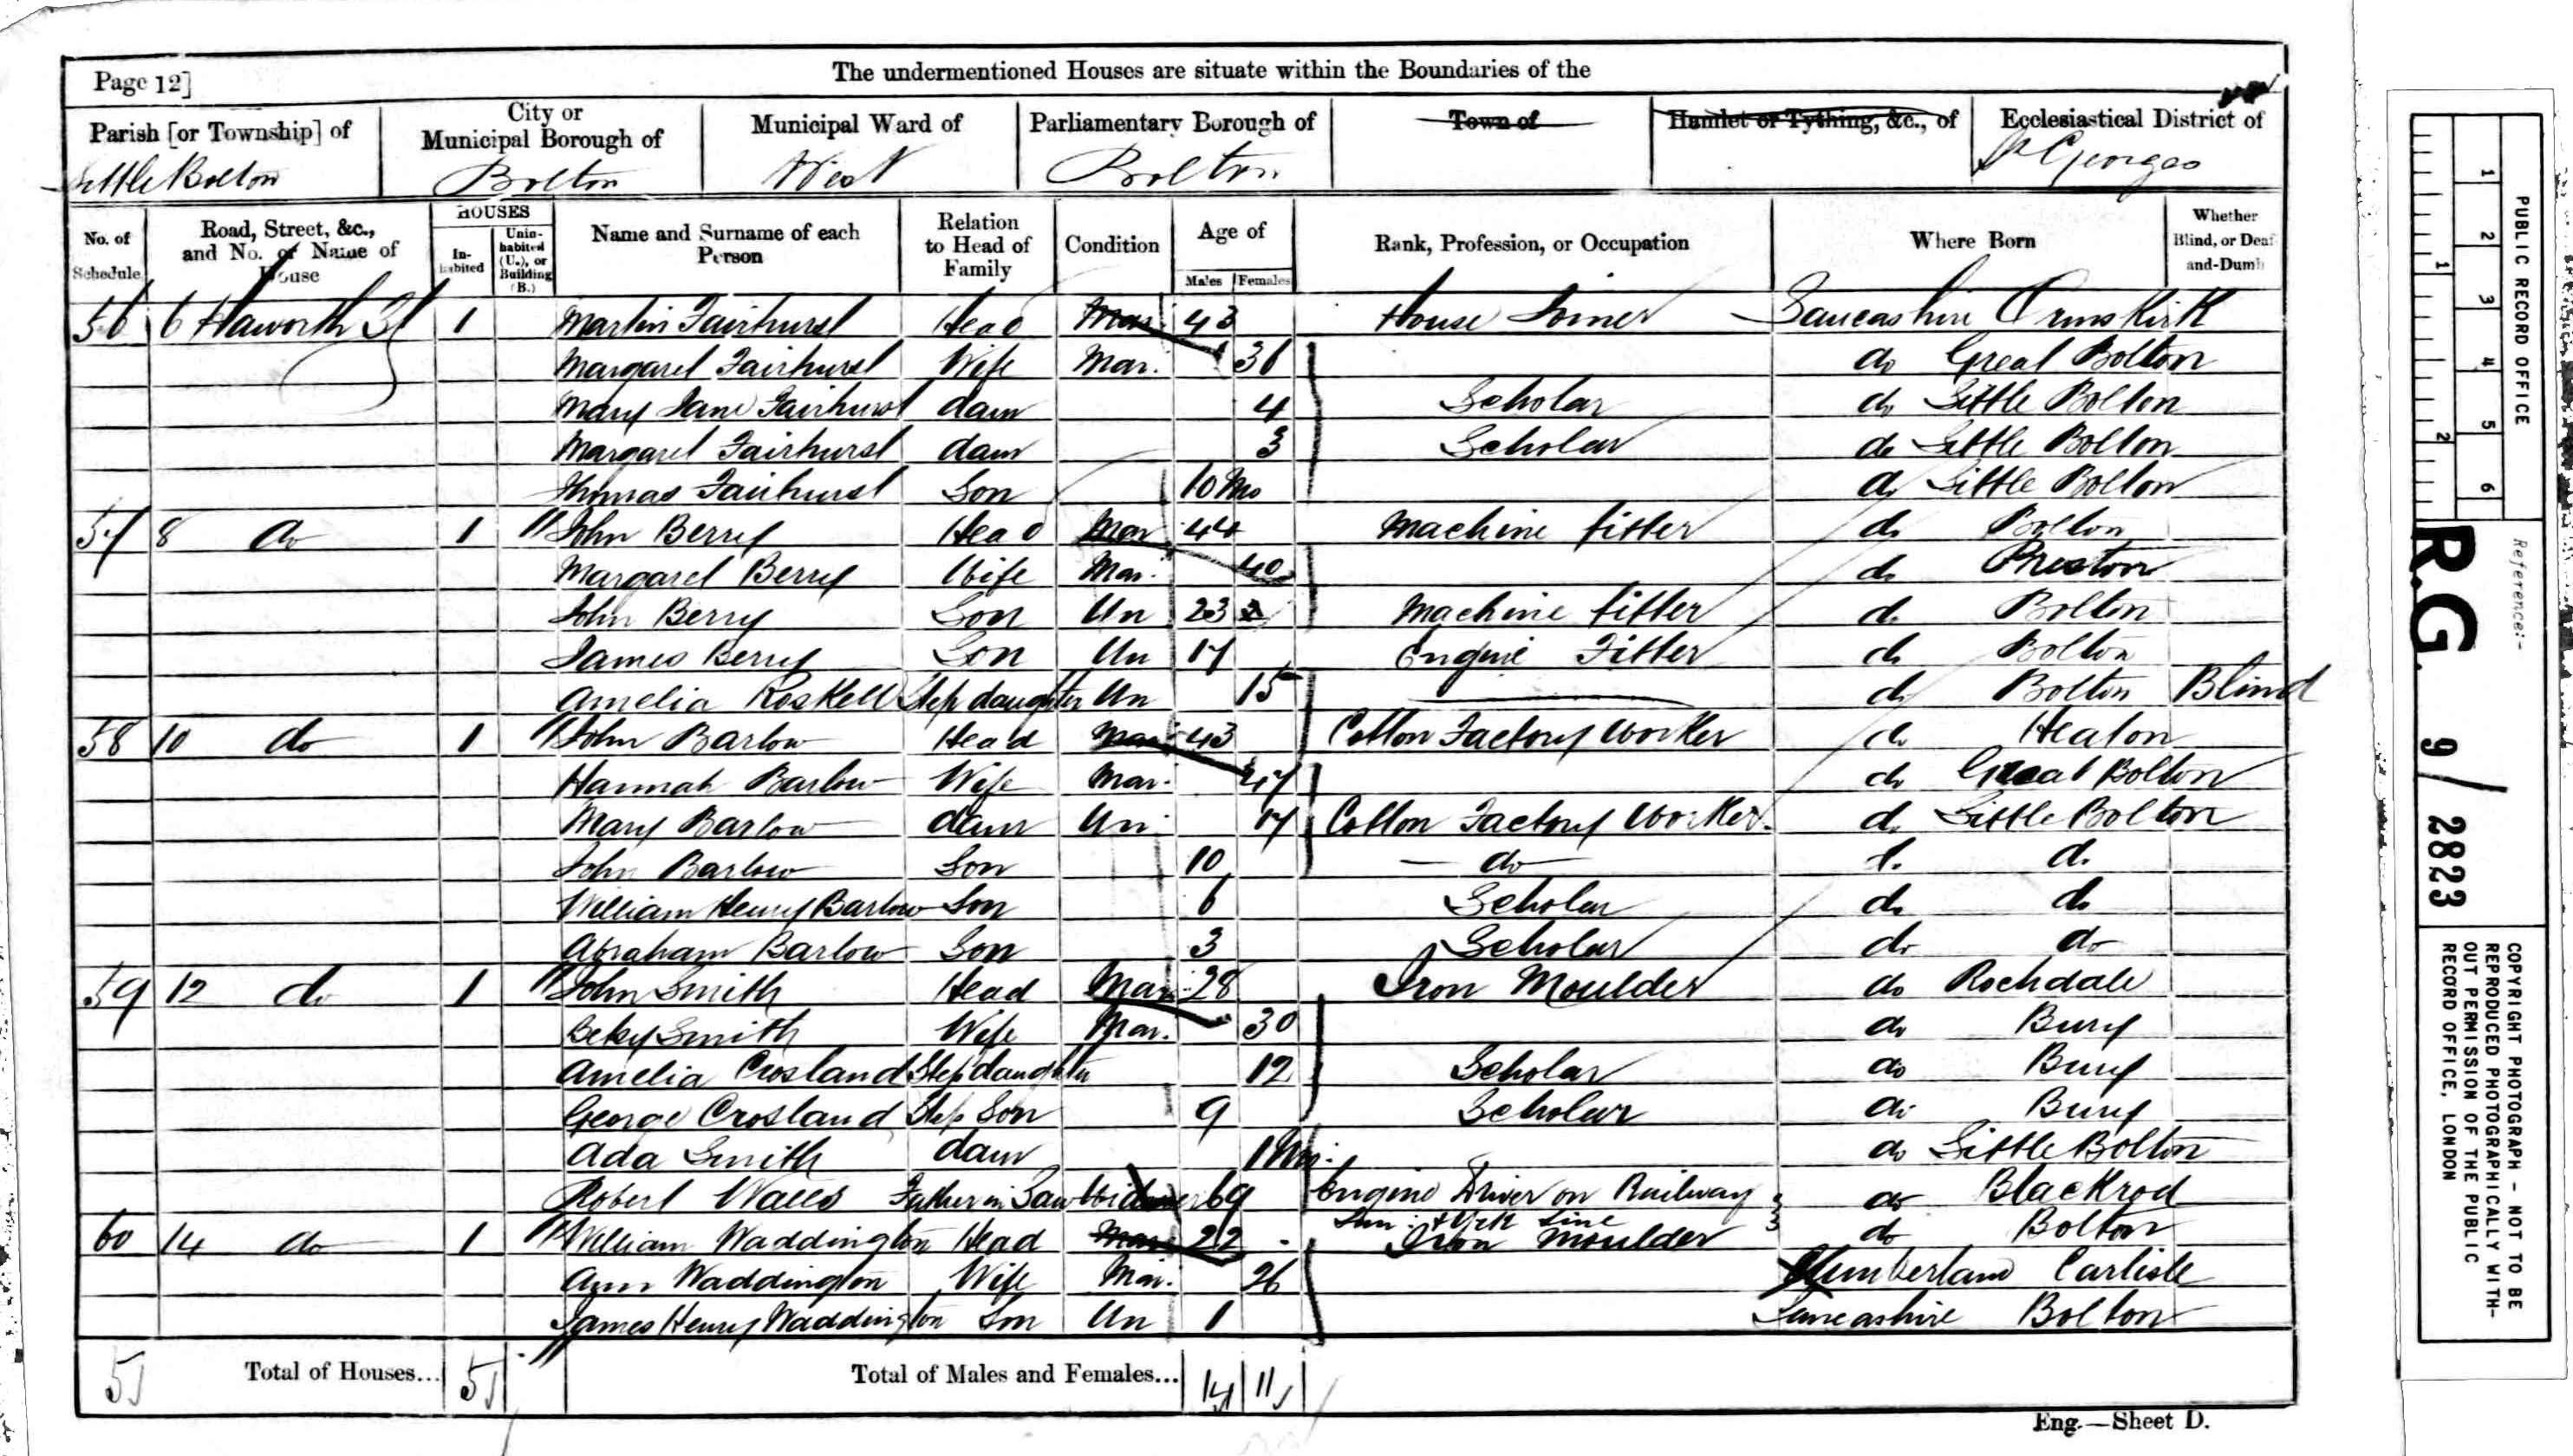 Page 12]
The undermentioned Houses are situate within the Boundaries of the
Parish [or Township] of
City or Municipal Borough of
Municipal Ward of
Parliamentary Borough of
Town of
Hamlet or Tything, &c., of
Ecclesiastical District of
Little Bolton Bolton West Bolton St Georges
No. of Schedule
Road, Street, &c., and No. or Name of House
HOUSES
In-habited
Unin-habited (U.), or Building (B.)
Name and Surname of each Person
Relation to Head of Family
Condition
Age of
Males Females
Rank, Profession, or Occupation
Where Born
Whether Blind, or Deaf-and-Dumb
56 6 Haworth St 1 Martin Fairhurst Head Mar 43 House Joiner Lancashire Ormskirk
Margaret Fairhurst Wife Mar. 36 do Great Bolton
Mary Jane Fairhurst daur 4 Scholar do Little Bolton
Margaret Fairhurst daur 3 Scholar do Little Bolton
Thomas Fairhurst Son 10 Mo do Little Bolton
57 8 do 1 John Berry Head Mar 44 Machine fitter do Bolton
Margaret Berry Wife Mar. 40 do Preston
John Berry Son Un 23 Machine fitter do Bolton
James Berry Son Un 17 Engine Fitter do Bolton
Amelia Roskell Step daughter Un 15 do Bolton Blind
58 10 do 1 John Barlow Head Mar 43 Cotton Factory Worker do Heaton
Hannah Barlow Wife Mar. 47 do Great Bolton
Mary Barlow daur Un 17 Cotton Factory Worker do Little Bolton
John Barlow Son 10 do do do
William Henry Barlow Son 6 Scholar do do
Abraham Barlow Son 3 Scholar do do
59 12 do 1 John Smith Head Mar 28 Iron Moulder do Rochdale
Betsy Smith Wife Mar. 30 do Bury
Amelia Crosland Step daughter 12 Scholar do Bury
George Crosland Step Son 9 Scholar do Bury
Ada Smith daur 1 Mo. do Little Bolton
Robert Father in Law Widower 69 Engine Driver on Railway do Blackrod
Lan. & York Line
60 14 do 1 William Waddington Head Mar 22 Iron Moulder do Bolton
Ann Waddington Wife Mar. 26 Cumberland Carlisle
James Henry Waddington Son Un 1 Lancashire Bolton
5 Total of Houses... 5 Total of Males and Females... 14 11
Eng.—Sheet D.
PUBLIC RECORD OFFICE
1 2 3 4 5 6
1 2
Reference:-
R.G. 9/2823
COPYRIGHT PHOTOGRAPH - NOT TO BE
REPRODUCED PHOTOGRAPHICALLY WITH-
OUT PERMISSION OF THE PUBLIC
RECORD OFFICE, LONDON